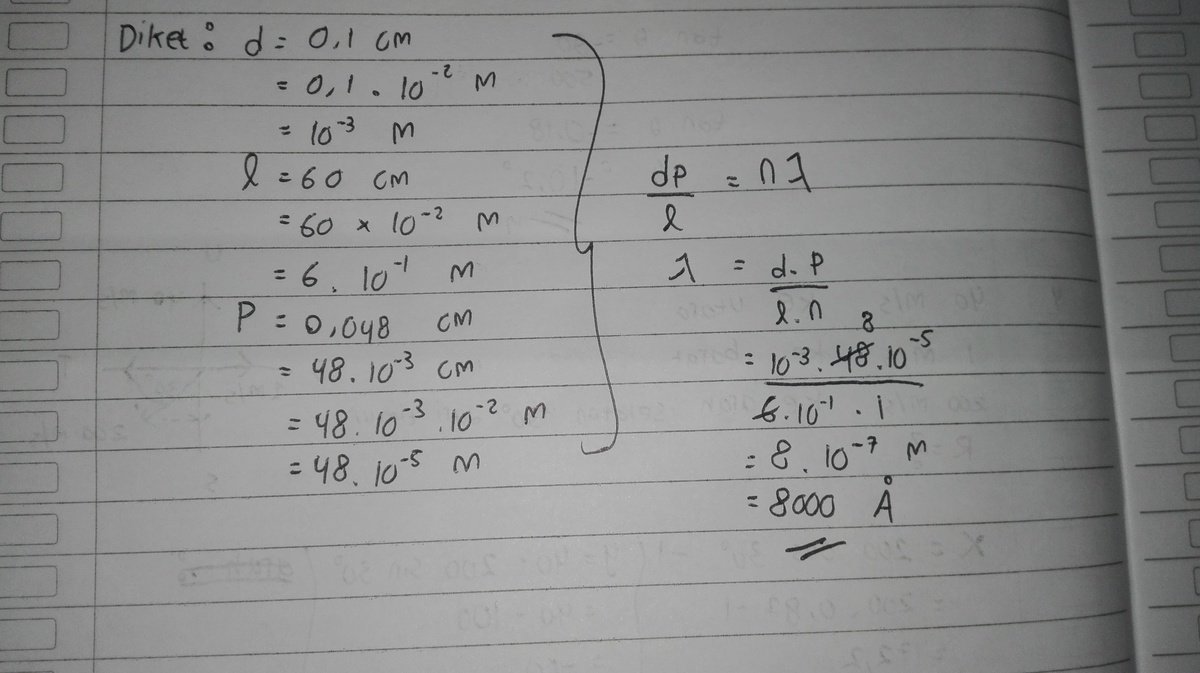 Diket : d = 0,1 cm
= 0,1 . 10⁻² m
= 10⁻³ m
l = 60 cm
= 60 × 10⁻² m
= 6 . 10⁻¹ m
P = 0,048 cm
= 48 . 10⁻³ cm
= 48 . 10⁻³ . 10⁻² m
= 48 . 10⁻⁵ m
dp/l = nλ
λ = d . P / l . n
= 10⁻³ . 48 8 . 10⁻⁵ / 6 . 10⁻¹ . 1
= 8 . 10⁻⁷ m
= 8000 Å